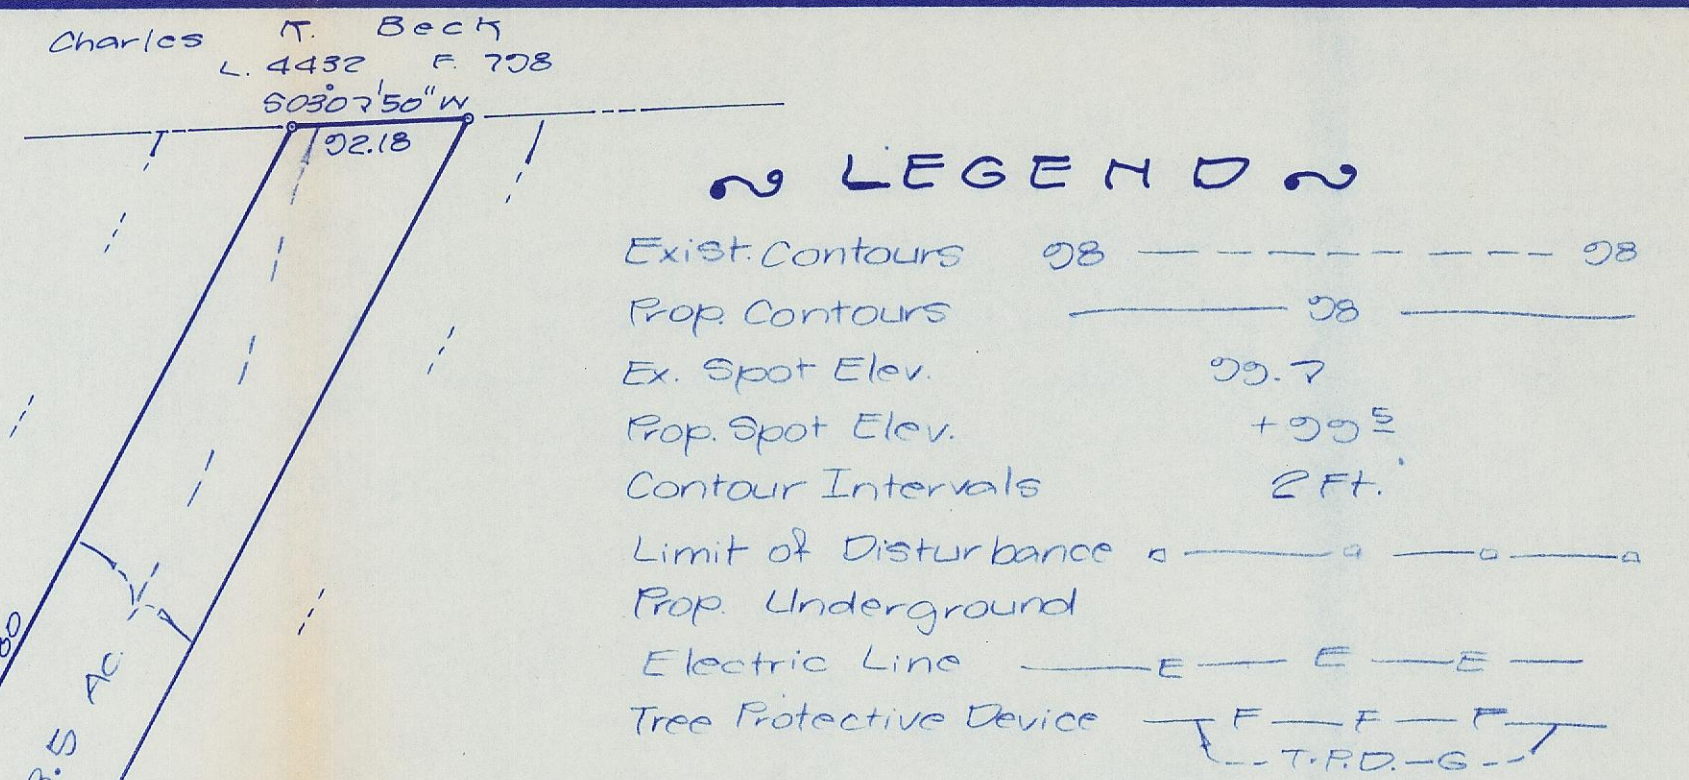 Charles K. Beck
L. 4432 F. 798
S03°07'50"W
92.18
~ LEGEND ~
Exist. Contours 98 — — — — — — — 98
Prop. Contours ——— 98 ———
Ex. Spot Elev. 99.7
Prop. Spot Elev. +99 5
Contour Intervals 2 Ft.
Limit of Disturbance
Prop. Underground
Electric Line — E — E — E —
Tree Protective Device — F — F — F —
T.P.D.-G
Ac.